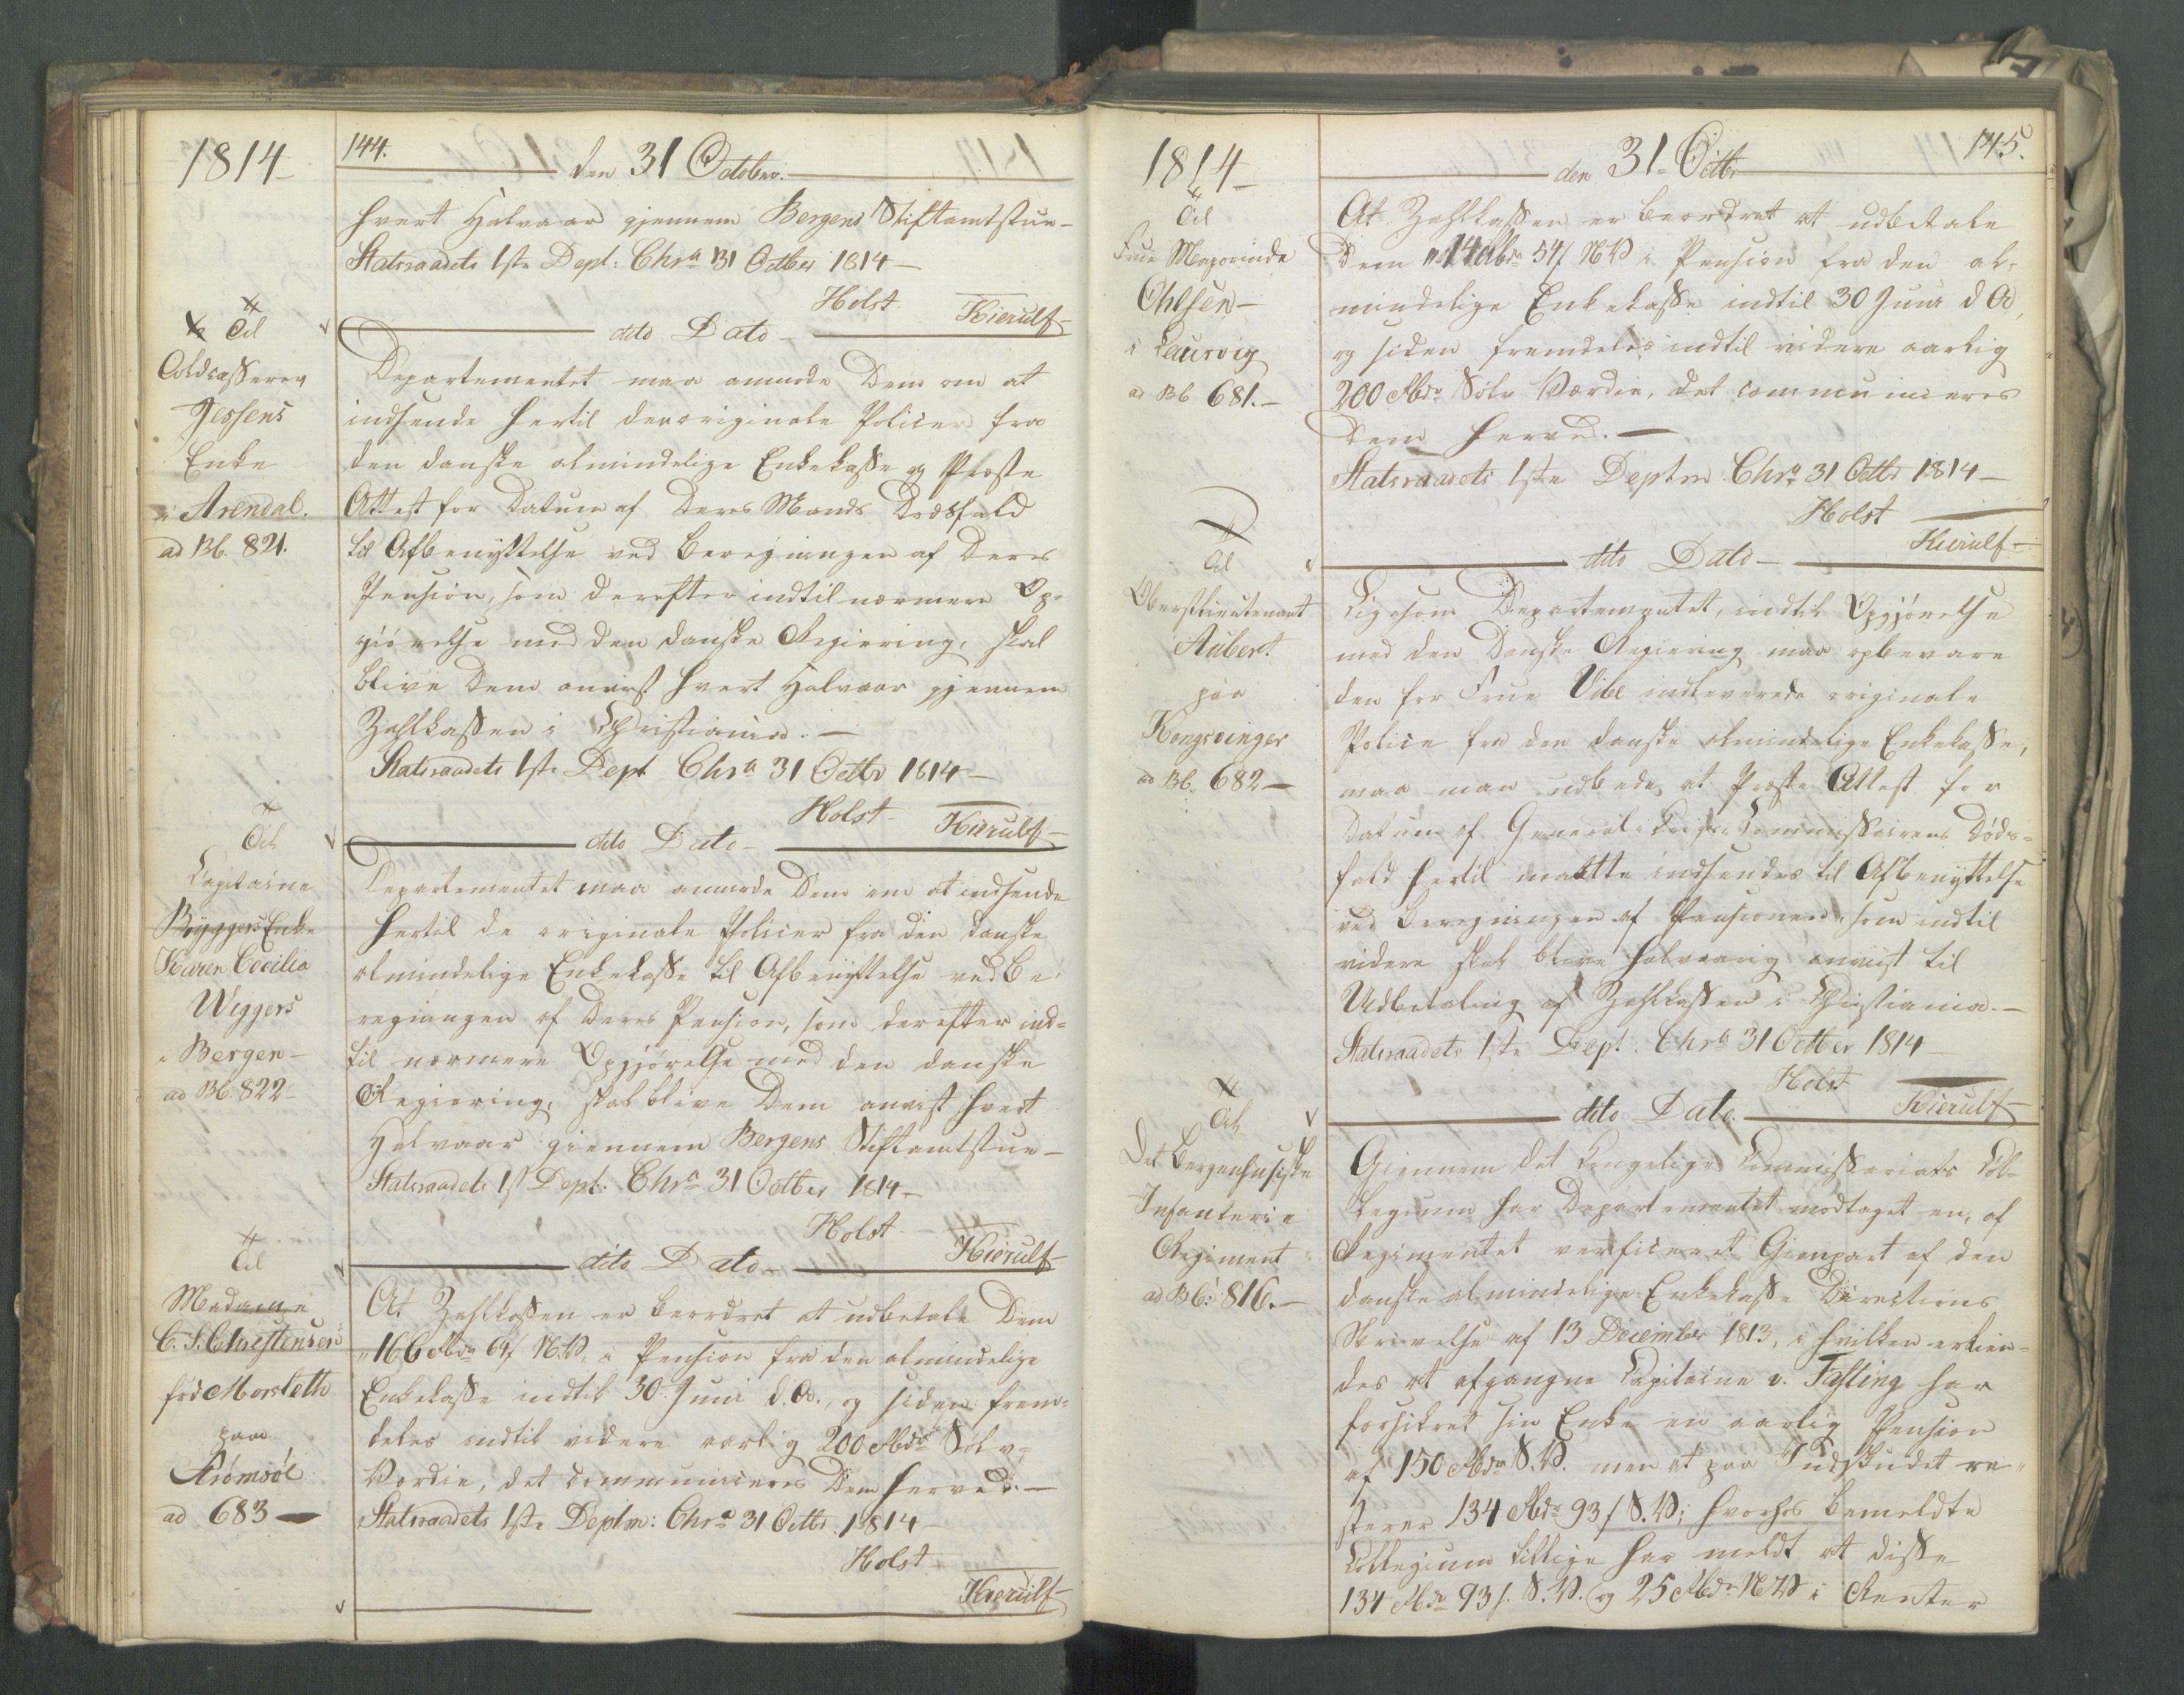 1814
144.
den 31 October.
hvert Halvaar gjennem Bergens Stiftamtstue –
Statsraadets 1ste Dept: Chra 31 Octber 1814 –
Holst
Kierulf
Til
Toldcasserer
Jessens
Enke
i Arendal.
ad Bb. 821.
dito Dato –
Departementet maa anmode Dem om at
indsende hertil den originale Police fra
den danske almindelige Enkekasse og Præste
Attest for Datum af Deres Mands Dødsfald
til Afbenyttelse ved Beregningen af Deres
Pension, som derefter indtil nærmere Op-
giørelse med den danske Regiering, skal
blive Dem anvist hvert Halvaar gjennem
Zahlkassen i Christiania. –
Statsraadets 1ste Dept Chra 31 Octbr 1814 –
Holst –
Kierulf –
Til
Capitaine
Ryggers Enke
Karen Cecilia
Wiggers
i Bergen –
ad Bb. 822 –
dito Dato –
Departementet maa anmode Dem om at indsende
hertil de originale Policer fra den danske
almindelige Enkekasse til Afbenyttelse ved Be-
regningen af Deres Pension, som derefter ind-
til nærmere Opgjørelse med den danske
Regiering, skal blive Dem anvist hvert
Halvaar giennem Bergens Stiftamtstue –
Statsraadets 1ste Dept: Chra 31 Octber 1814 –
Holst
Kierulf
Til
Madame
C. S. Christensen
fød Morsteth
paa
Strømsøe
ad 683 –
dito Dato –
At Zahlkassen er beordret at udbetale Dem
"166 Rbdr 64 f N.V. i Pension fra den almindelige
Enkekasse indtil 30. Juni d. A., og siden frem-
deles indtil videre aarlig 200 Rbdr Sølv-
Værdie, det communiceres Dem herved. –
Statsraadets 1ste Deptm: Chra 31 Octbr 1814 –
Holst
Kierulf
1814 –
145.
den 31. Octbr
Til
Frue Majorinde
Ohlsen –
i Laurvig
ad Bb 681. –
At Zahlkassen er beordret at udbetale
Dem " 14 Rbdr 54 f N V i Pension fra den al-
mindelige Enkekasse indtil 30 Juni d A,
og siden fremdeles indtil videre aarlig
200 Rbdr Sølv Værdie, det communiceres
Dem herved. –
Statsraadets 1ste Deptm Chra 31 Octbr 1814 –
Holst
Kierulf –
Til
Oberstlieutenant
Aubert
paa
Kongsvinger
ad Bb. 682 –
dito Dato –
Ligesom Departementet, indtil Opgjørelse
med den Danske Regiering maa opbevare
den for Frue Vibe indleverede originale
Police fra den danske almindelige Enkekasse,
maa man udbede at Præste Attest for
Datum af General-Krigs-Commissairens Døds-
fald hertil maatte indsendes til Afbenyttelse
ved Beregningen af Pensionen, som indtil
videre skal blive halvaarig anviist til
Udbetaling af Zahlkassen i Christiania. –
Statsraadets 1ste Dept. Chra 31 Octber 1814 –
Holst
Kierulf –
Til
Det Bergenhusiske
Infanterie
Regiment
ad Bb: 816. –
dito Dato –
Giennem det kongelige Commissariats Col-
legium har Departementet modtaget en, af
Regimentet verficeret Gienpart af den
danske almindelige Enkekasse Directions
Skrivelse af 13 December 1813, i hvilken erkien-
des at afgangne Capitaine v. Tafling har
forsikret sin Enke en aarlig Pension
af 150 Rbdr S.V. men at paa Indskudet re-
sterer 134 Rbdr 93 f S.V; hvorhos bemeldte
Collegium tillige har meldt at disse
134 Rbdr 93 f. S.V. og 25 Rbdr N V i Renter